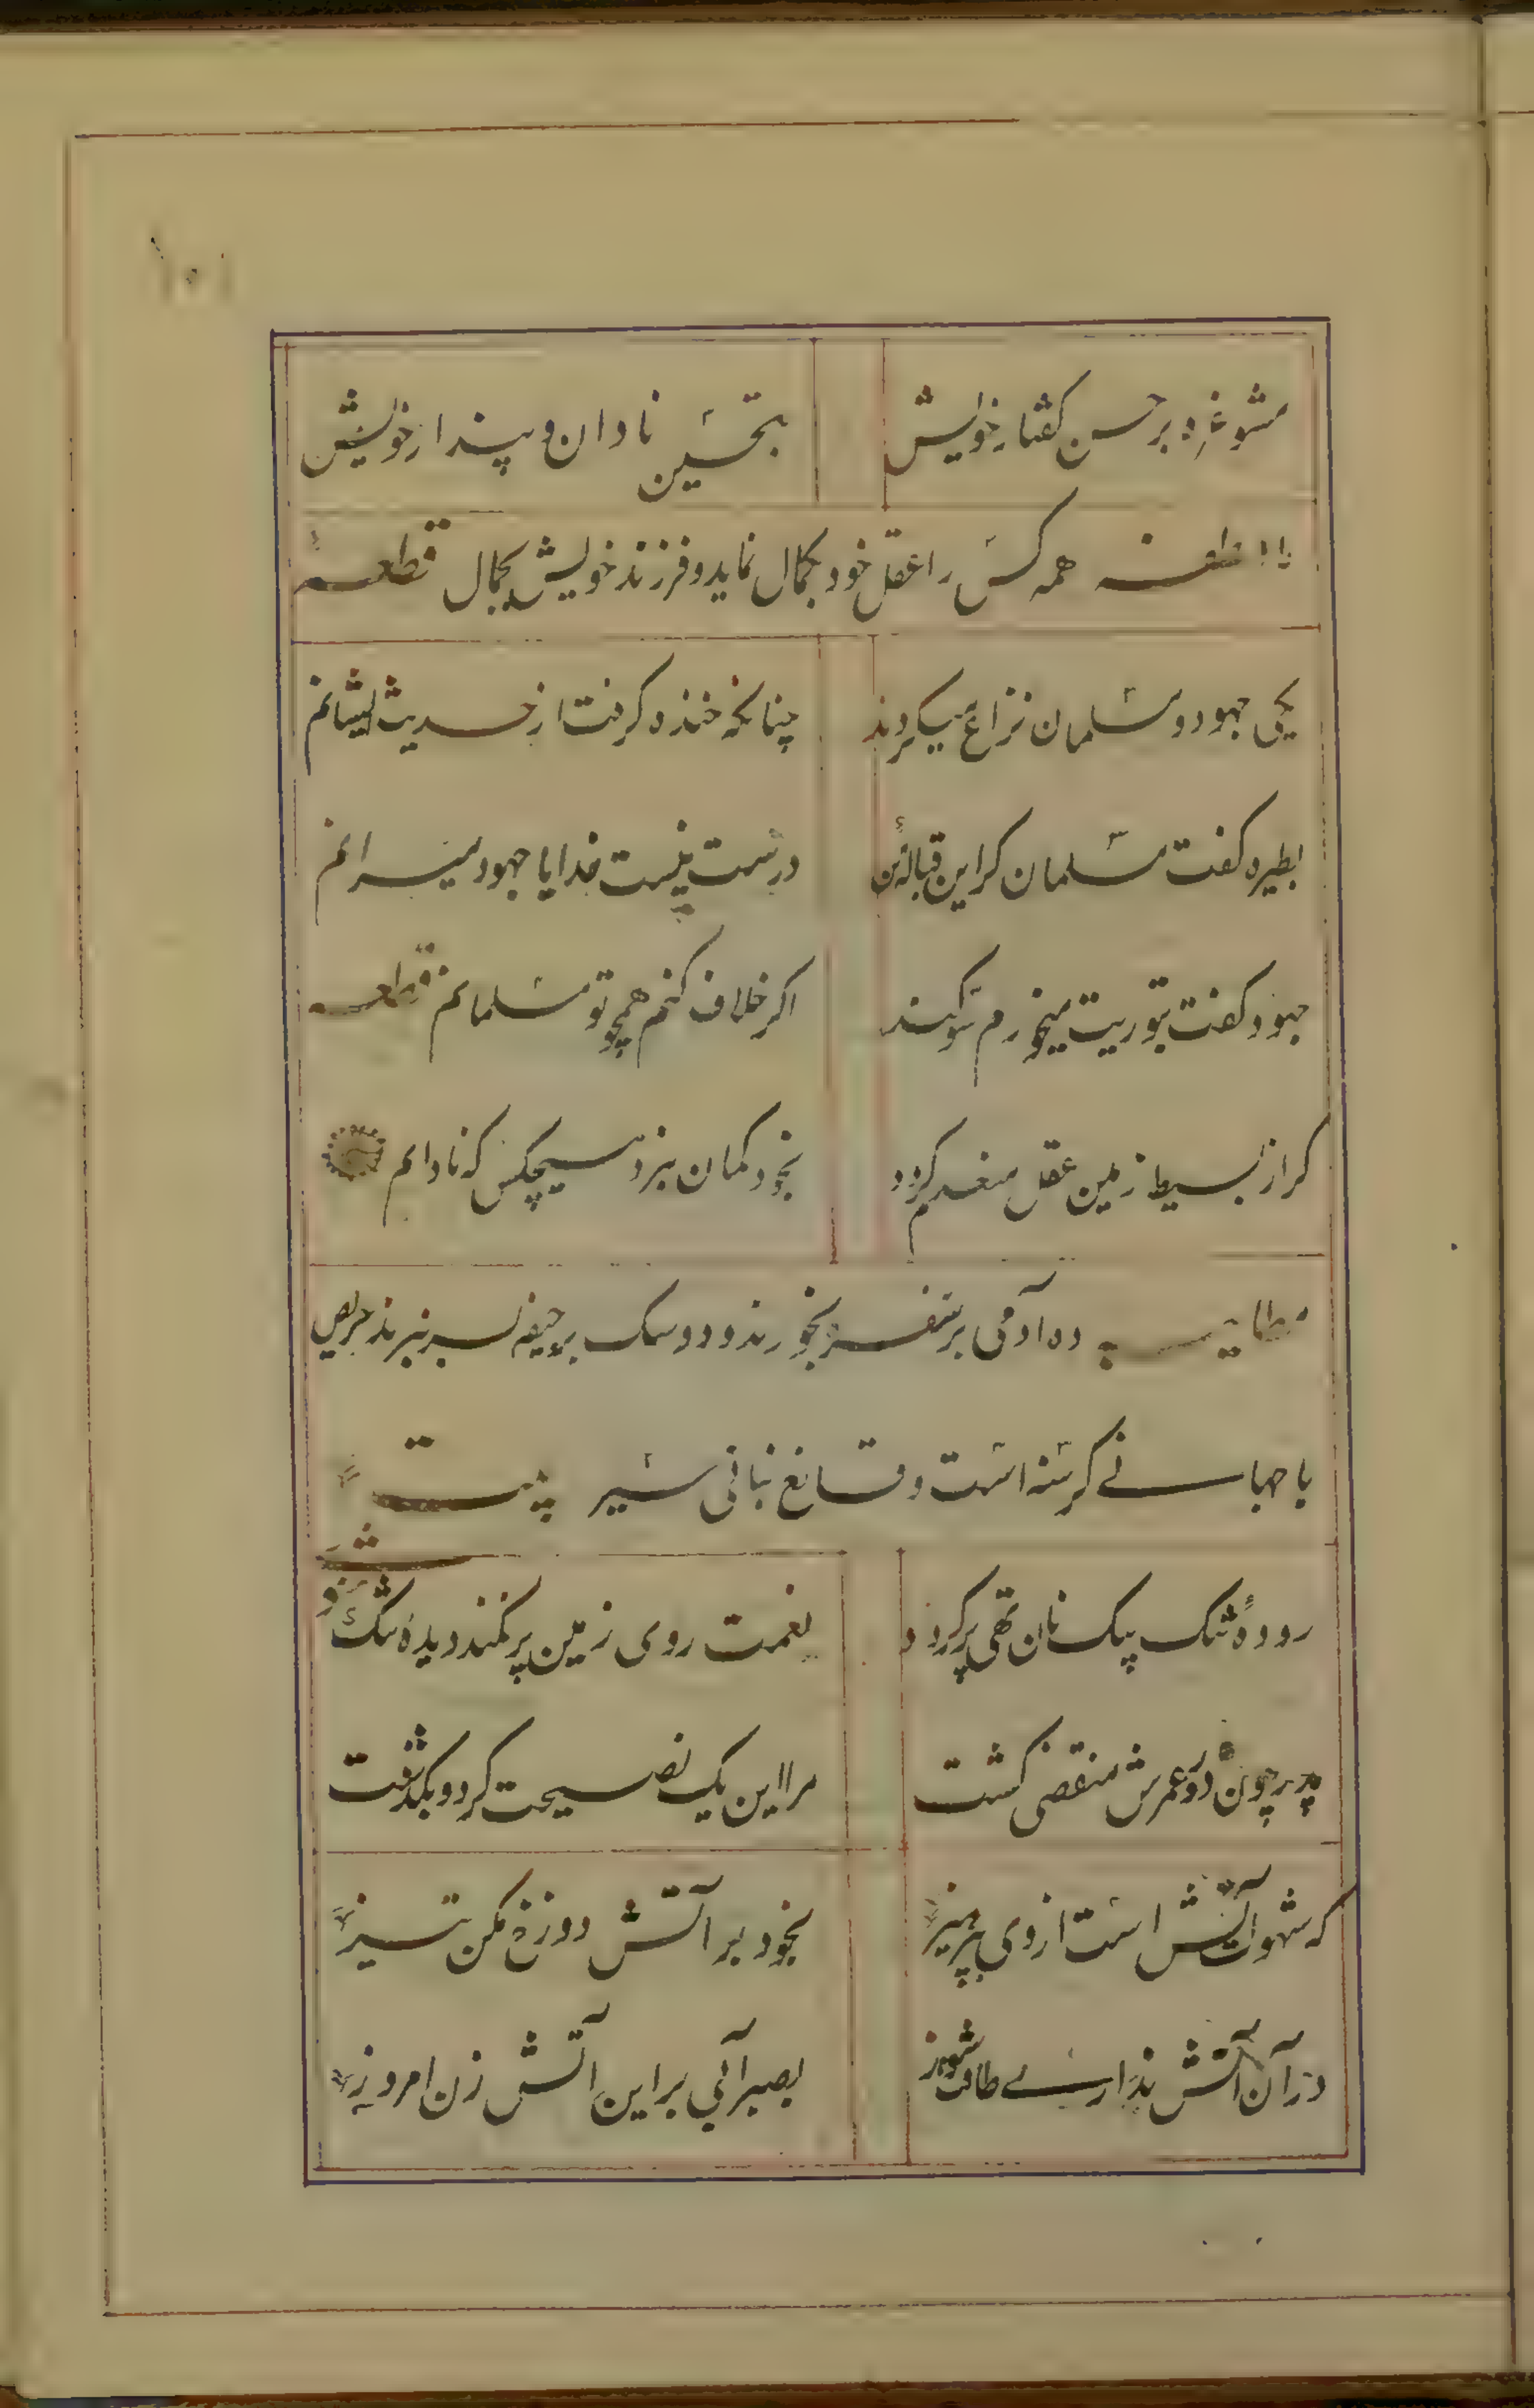 مشو غره بر حسن کفتار خویش بتحسین نادان و پندار خویش
همه کس را عقل خود بکمال نماید و فرزند خویش بجمال قطعه
یکی جهود و مسلمان نزاع میکردند چنانکه خنده کرفت از حدیث ایشانم
بطیره کفت مسلمان کر این قبالهٔ من درست نیست خدایا جهود میرانم
جهود کفت بتوریت میخورم سوکند اکر خلاف کنم همچو تو مسلمانم قطعه
کر از بسیط زمین عقل منعدم کردد بخود کمان نبرد هیچکس که نادانم
مطایبه ده آدمی بر سفره بخورند و دو سک بر جیفه بسر نبرند حریص
با جهانے کرسنه است و قانع بنانی سیر بیت
رودهٔ تنک بیک نان تهی پر کردد نعمت روی زمین پر نکند دیدهٔ تنک
مثنوی
پدر چون دور عمرش منقضی کشت مرا این یک نصیحت کرد و بکذشت
که شهوت آتش است از وی بپرهیز بخود بر آتش دوزخ مکن تیز
در آن آتش نداری طاقت سوز بصبر آبی بر این آتش زن امروز